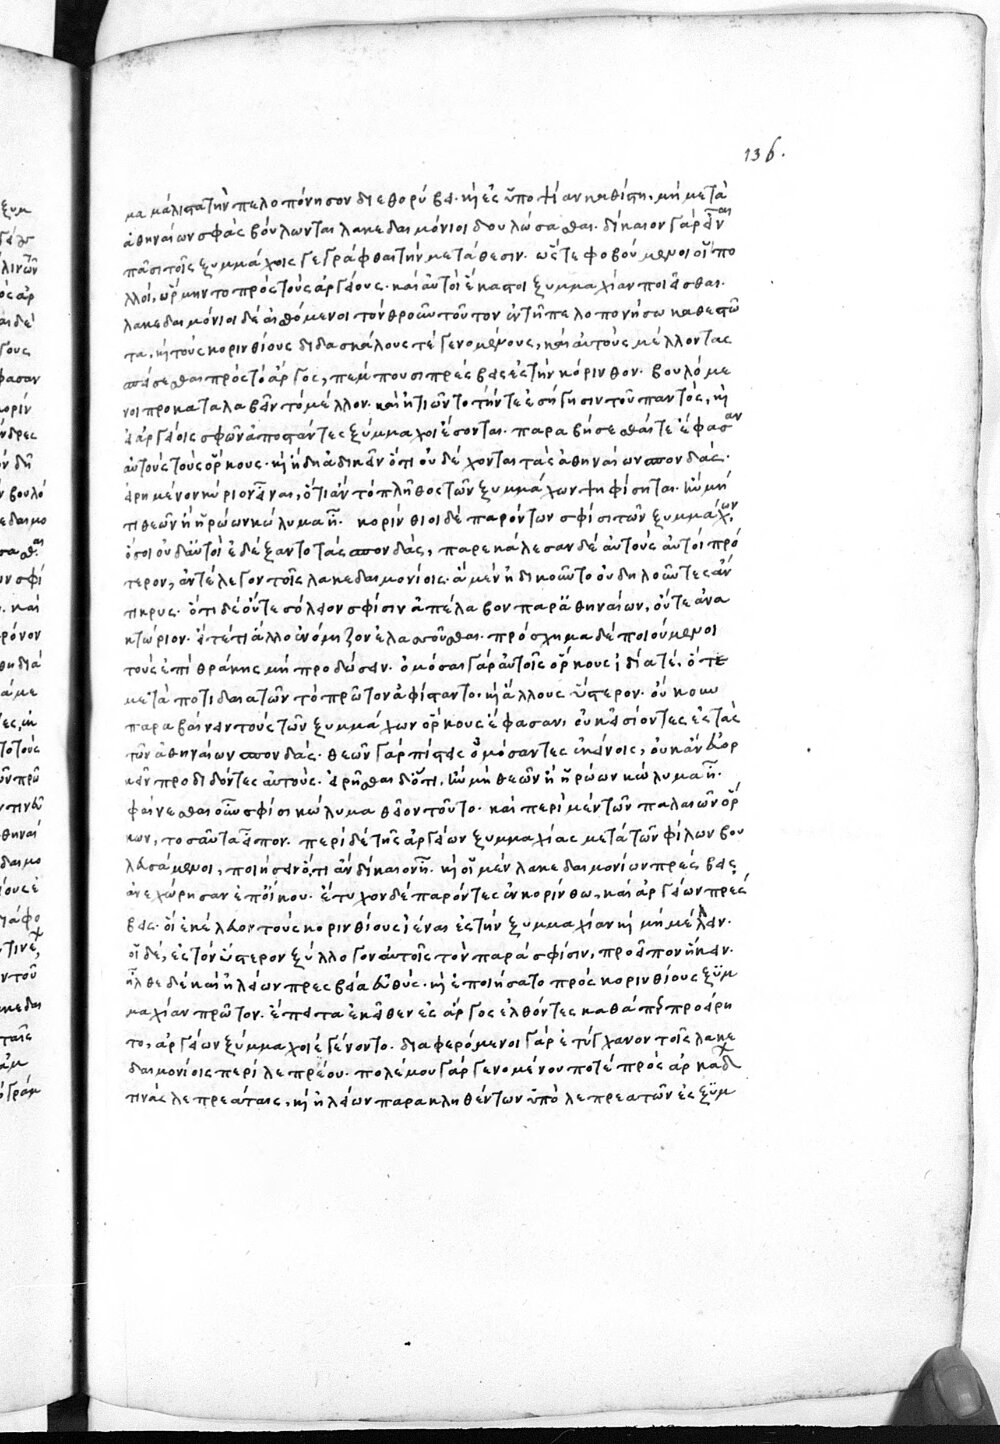 136.
μα μάλιστα τὴν πελοπόνησον διεθορύβει. κ(αὶ) ἐς ὑποψίαν καθίστη, μὴ μετὰ
ἀθηναίων σφᾶς βούλωνται λακεδαιμόνιοι δουλώσασθαι. δίκαιον γὰρ εἶναι
πᾶσι τοῖς ξυμμάχοις γεγράφθαι τὴν μετάθεσιν. ὥστε φοβούμενοι οἱ πο
λλοί, ὥρμηντο πρὸς τοὺς ἀργείους. καὶ αὐτοὶ ἕκαστοι ξυμμαχίαν ποιεῖσθαι.
λακεδαιμόνιοι δὲ αἰσθόμενοι τὸν θροῦν τοῦτον ἐν τῇ πελοπονήσω καθεστῶ
τα, κ(αὶ) τοὺς κορινθίους διδασκάλους τὲ γενομένους, καὶ αὐτοὺς μέλλοντας
σπείσεσθαι πρὸς τὸ ἄργος, πέμπουσι πρέσβεις ἐς τὴν κόρινθον. βουλόμε
νοι προκαταλαβεῖν τὸ μέλλον. καὶ ἠτιῶντο τήν τε ἐσήγησιν τοῦ παντός, κ(αὶ)
εἰ ἀργείοις σφῶν ἀποστάντες ξύμμαχοι ἔσονται. παραβήσεσθαί τε ἔφασαν
αὐτοὺς τοὺς ὅρκους. κ(αὶ) ἤδη ἀδικεῖν ὅτι οὐ δέχονται τὰς ἀθηναίων σπονδάς.
εἰρημένον κύριον εἶναι, ὅτι ἂν τὸ πλῆθος τῶν ξυμμάχων ψηφίσηται. ἢν μή
τι θεῶν ἢ ἡρώων κώλυμα ᾖ. κορίνθιοι δὲ παρόντων σφίσι τῶν ξυμμάχων,
ὅσοι οὐδ' αὐτοὶ ἐδέξαντο τὰς σπονδάς, παρεκάλεσαν δὲ αὐτοὺς αὐτοι πρό
τερον, ἀντέλεγον τοῖς λακεδαιμονίοις. ἃ μὲν ἠδικοῦντο οὐ δηλοῦντες ἄν
τικρυς. ὅτι δὲ οὔτε σόλιον σφίσιν ἀπέλαβον παρ' ἀθηναίων, οὔτε ἀνα
κτώριον. εἴτέ τι ἄλλο ἐνόμιζον ἐλασσοῦσθαι. πρόσχημα δὲ ποιούμενοι
τοὺς ἐπὶ θράκης μὴ προδώσειν. ὀμόσαι γὰρ αὐτοῖς ὅρκους ἰδία τέ, ὅτε
μετὰ ποτιδαιατῶν τὸ πρῶτον ἀφίσταντο. κ(αὶ) ἄλλους ὕστερον. οὔκουν
παραβαίνειν τοὺς τῶν ξυμμάχων ὅρκους ἔφασαν, οὐκ εἰσίοντες ἐς τὰς
τῶν ἀθηναίων σπονδάς. θεῶν γὰρ πίστεις ὀμόσαντες ἐκείνοις, οὐκ ἂν εὐορ
κεῖν προδιδόντες αὐτούς. εἰρῆσθαι δ' ὅτι, ἢν μὴ θεῶν ἢ ἡρώων κώλυμα ᾖ.
φαίνεσθαι οὖν σφίσι κώλυμα θεῖον τοῦτο. καὶ περὶ μὲν τῶν παλαιῶν ὅρ
κων, τοσαῦτα εἶπον. περὶ δὲ τῆς ἀργείων ξυμμαχίας μετὰ τῶν φίλων βου
λευσάμενοι, ποιήσειν ὅ,τι ἂν δίκαιον ᾖ. κ(αὶ) οἱ μὲν λακεδαιμονίων πρέσβεις
ἀνεχώρησαν ἐπ' οἴκου. ἔτυχον δὲ παρόντες ἐν κορίνθω, καὶ ἀργείων πρέσ
βεις. οἳ ἐκέλευον τοὺς κορινθίους ἰέναι ἐς τὴν ξυμμαχίαν κ(αὶ) μὴ μέλλειν.
οἱ δέ, ἐς τὸν ὕστερον ξύλλογον αὐτοῖς τὸν παρὰ σφίσιν, προεῖπον ἥκειν.
ἦλθε δὲ καὶ ἠλείων πρεσβεία εὐθύς. κ(αὶ) ἐποιήσατο πρὸς κορινθίους ξυμ
μαχίαν πρῶτον. ἔπειτα ἐκεῖθεν ἐς ἄργος ἐλθόντες καθάπερ προείρη
το, ἀργείων ξύμμαχοι ἐγένοντο. διαφερόμενοι γὰρ ἐτύγχανον τοῖς λακε
δαιμονίοις περὶ λεπρέου. πολέμου γὰρ γενομένου ποτὲ πρὸς ἀρκάδων
τινὰς λεπρεάταις, κ(αὶ) ἠλείων παρακληθέντων ὑπὸ λεπρεατῶν ἐς ξυμ